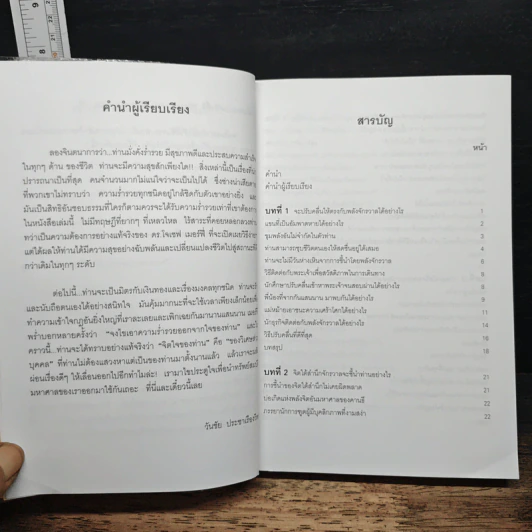 คำนำผู้เรียบเรียง
ลองจินตนาการว่า...ท่านมั่งคั่งร่ำรวย มีสุขภาพดีและประสบความสำเร็จ
ในทุกๆ ด้าน ของชีวิต ท่านจะมีความสุขสักเพียงใด!! สิ่งเหล่านี้เป็นเรื่องที่
ปรารถนาเป็นที่สุด คนจำนวนมากไม่แน่ใจว่าจะเป็นไปได้ ซึ่งช่างน่าเสียดาย
ที่พวกเขาไม่ทราบว่า ความร่ำรวยทุกชนิดอยู่ใกล้ชิดกับตัวเขาอย่างยิ่ง
มันเป็นสิทธิอันชอบธรรมที่ใครก็ตามควรจะได้รับความร่ำรวยเท่าที่เขาต้อง
ในหนังสือเล่มนี้ ไม่มีทฤษฎีที่ยากๆ ที่เหลวไหล ไร้สาระที่คอยหลอกลวง
ว่าเป็นความต้องการอย่างแท้จริงของ ดร.โจเซฟ เมอร์ฟี่ ที่จะเปิดเผยวิธี
แต่ได้ผลให้ท่านได้มีความสุขอย่างฉับพลันและเปลี่ยนแปลงชีวิตไปสู่สถานะที่
กว่าเดิมในทุกๆ ระดับ
ต่อไปนี้...ท่านจะเป็นมิตรกับเงินทองและเรื่องมงคลทุกชนิด ท่านจะ
และนับถือตนเองได้อย่างสนิทใจ มันคุ้มมากนะที่จะใช้เวลาเพียงเล็กน้อย
ทำความเข้าใจกฎอันยิ่งใหญ่ที่เราละเลยและเพิกเฉยกันมานานแสนนาน
พร่ำบอกหลายครั้งว่า “จงไขเอาความร่ำรวยออกจากใจของท่าน” และ
คราวนี้...ท่านจะได้ทราบอย่างแท้จริงว่า “จิตใจของท่าน” คือ “ของวิเศษ
บุคคล” ที่ท่านไม่ต้องแสวงหาแต่เป็นของท่านมาตั้งนานแล้ว แล้วเราจะ
ผ่อนเรื่องดีๆ ให้เลื่อนออกไปอีกทำไมล่ะ! เรามาไขประตูใจเพื่อนำทรัพย์
มหาศาลของเราออกมาใช้กันเถอะ ที่นี่และเดี๋ยวนี้เลย
วันชัย ประชาเรือง
สารบัญ
หน้า
คำนำ
คำนำผู้เรียบเรียง
บทที่ 1 จะปรับคลื่นให้ตรงกับพลังจักรวาลได้อย่างไร 1
แขนที่เป็นอัมพาตหายได้อย่างไร 2
ขุมพลังอันไม่จำกัดในตัวท่าน 3
ท่านสามารถชุบชีวิตตนเองให้สดชื่นอยู่ได้เสมอ 4
ท่านจะไม่มีวันห่างเหินจากการชี้นำโดยพลังจักรวาล 6
วิธีติดต่อกับพระเจ้าเพื่อสวัสดิภาพในการเดินทาง 7
นักศึกษาปรับคลื่นเข้าหาพระเจ้าจนสอบผ่านได้อย่างไร 8
พี่น้องที่จากกันแสนนาน มาพบกันได้อย่างไร 9
แม่หม้ายเอาชนะความเศร้าโศกได้อย่างไร 11
นักธุรกิจติดต่อกับพลังจักรวาลได้อย่างไร 14
วิธีปรับคลื่นที่ดีที่สุด 16
บทสรุป 18
บทที่ 2 จิตใต้สำนึกจักรวาลจะชี้นำท่านอย่างไร 21
การชี้นำของจิตใต้สำนึกไม่เคยผิดพลาด 21
บ่อเกิดแห่งพลังจิตอันมหาศาลของคานธี 22
ภรรยานักการทูตผู้มีบุคลิกภาพที่งามสง่า 22